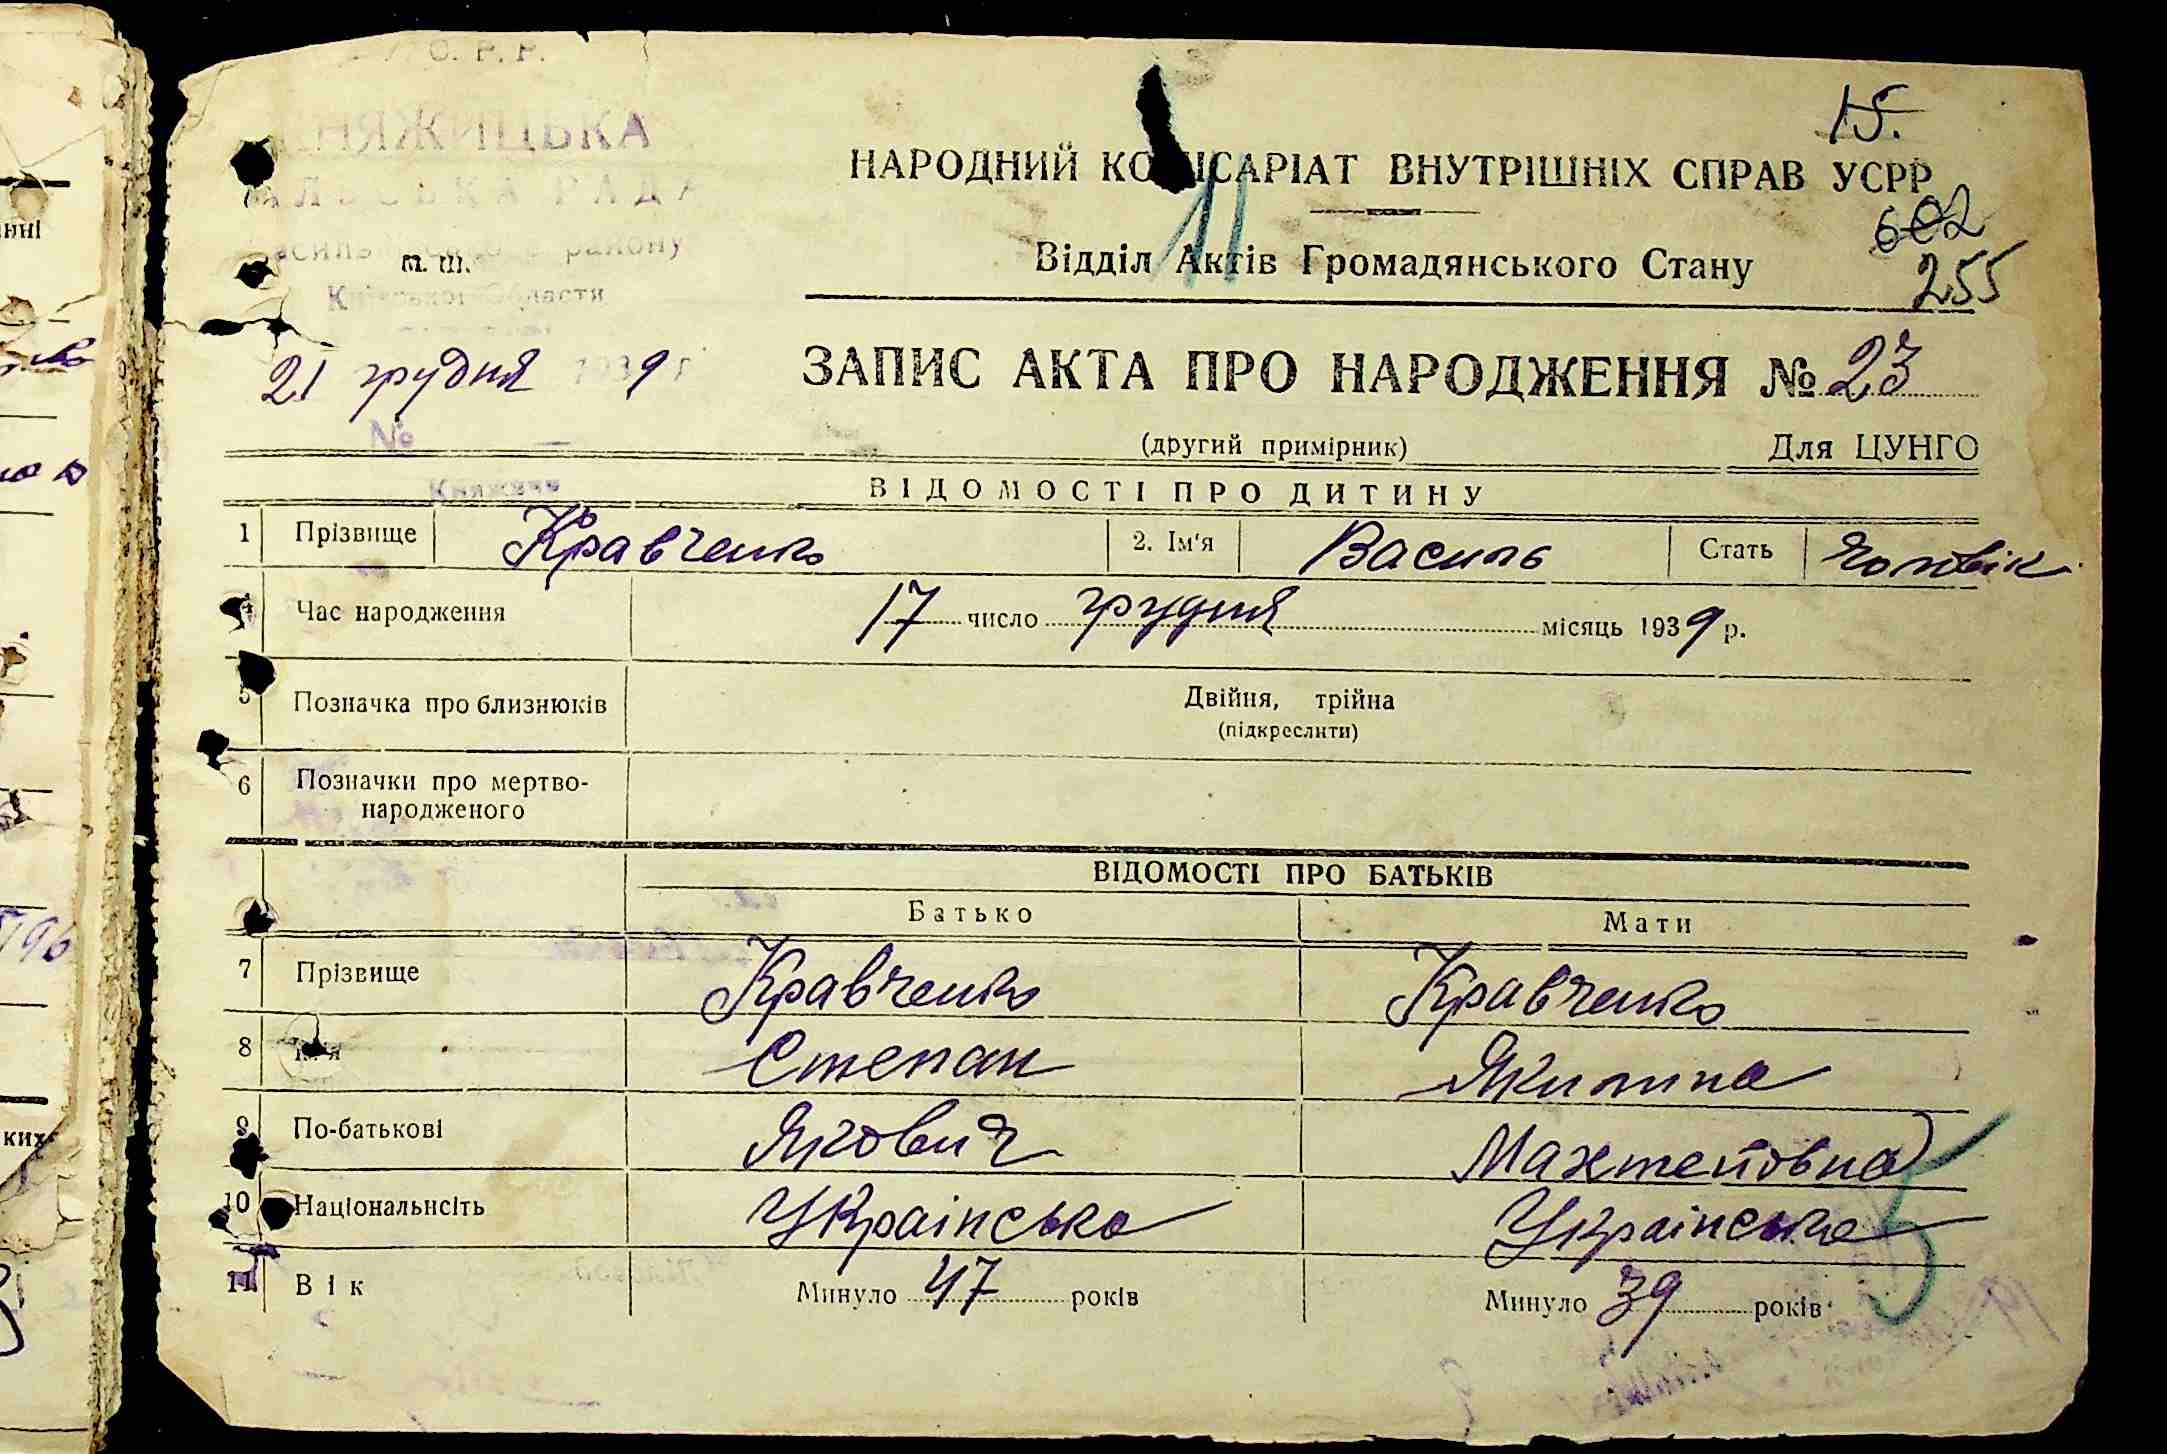 О. Р. Р.
КНЯЖИЦЬКА
СІЛЬСЬКА РАДА
району
м. ш.
Київської Области
21 грудня 1939 г
№ —
15.
НАРОДНИЙ КОМІСАРІАТ ВНУТРІШНІХ СПРАВ УСРР
11
602
Відділ Актів Громадянського Стану
255
ЗАПИС АКТА ПРО НАРОДЖЕННЯ № 23
(другий примірник) Для ЦУНГО
Княжичі
ВІДОМОСТІ ПРО ДИТИНУ
1 Прізвище Кравченко 2. Ім'я Василь Стать Чоловік
4 Час народження 17 число грудня місяць 1939 р.
5 Позначка про близнюків Двійня, трійна
(підкреслити)
6 Позначки про мертво-
народженого
ВІДОМОСТІ ПРО БАТЬКІВ
Батько Мати
7 Прізвище Кравченко Кравченко
8 Ім'я Степан Якилина
9 По-батькові Якович Махтейовна
10 Національнсіть Українська Українська
11 Вік Минуло 47 років Минуло 39 років
нні
796
ких